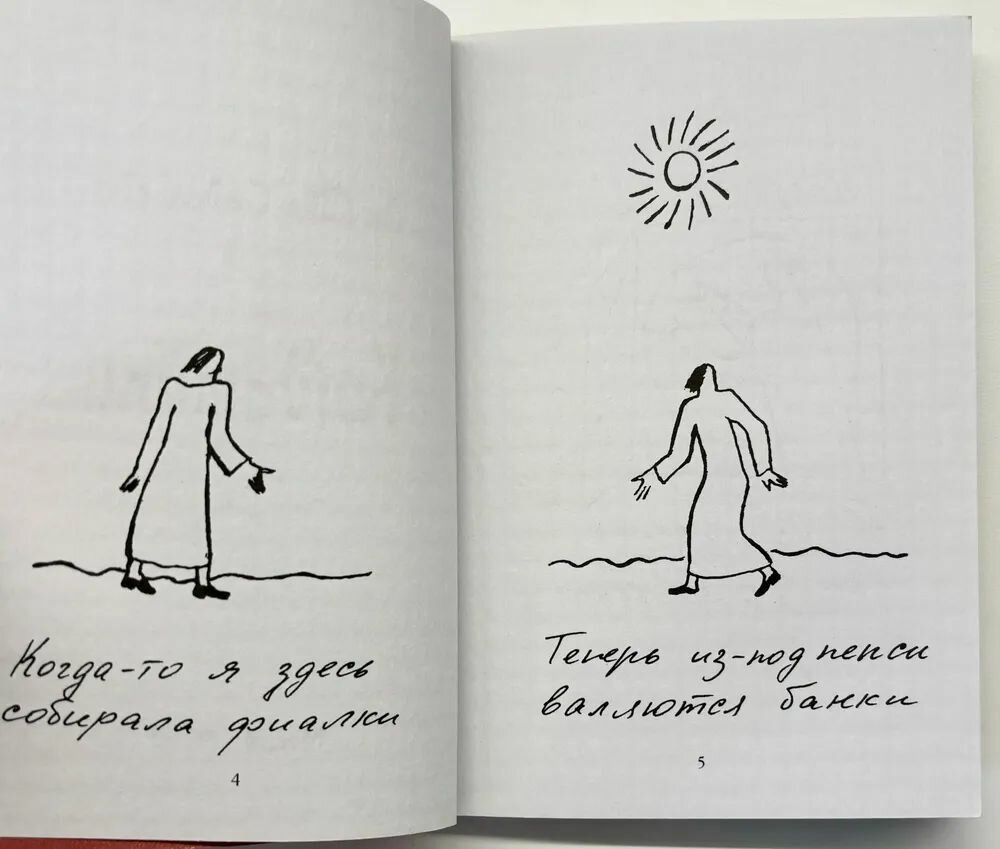 Когда-то я здесь
собирала фиалки
4
Теперь из-под пепси
валяются банки
5